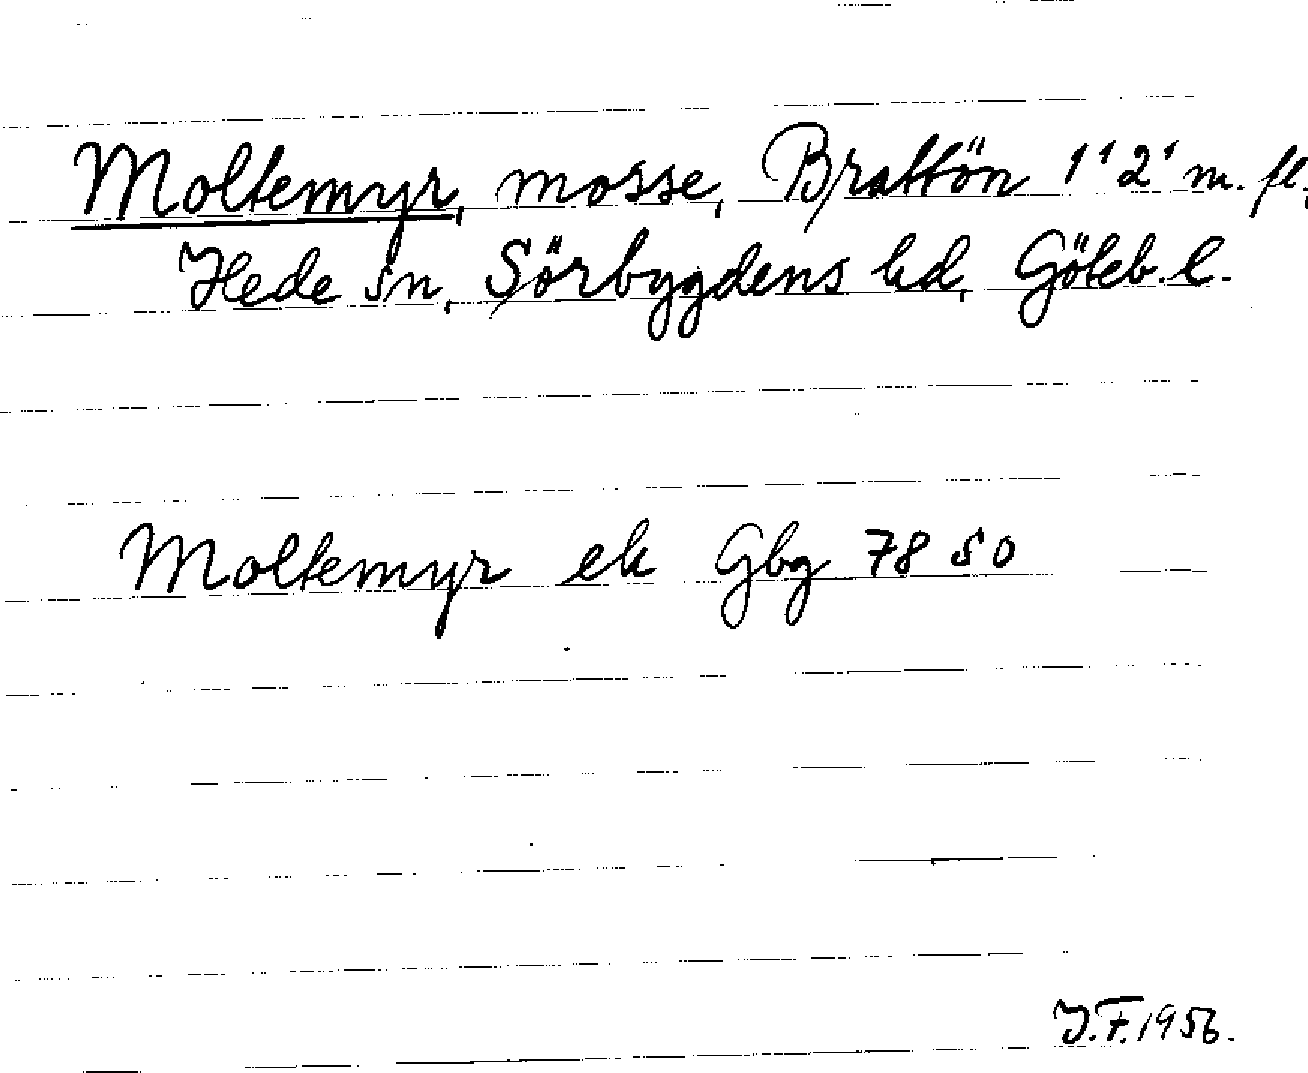 Moltemyr, mosse, Brattön 1¹ 2¹ m. fl.,
Hede sn, Sörbygdens hd, Göteb. l.
Moltemyr ek Gbg 78 50
J.F. 1956.